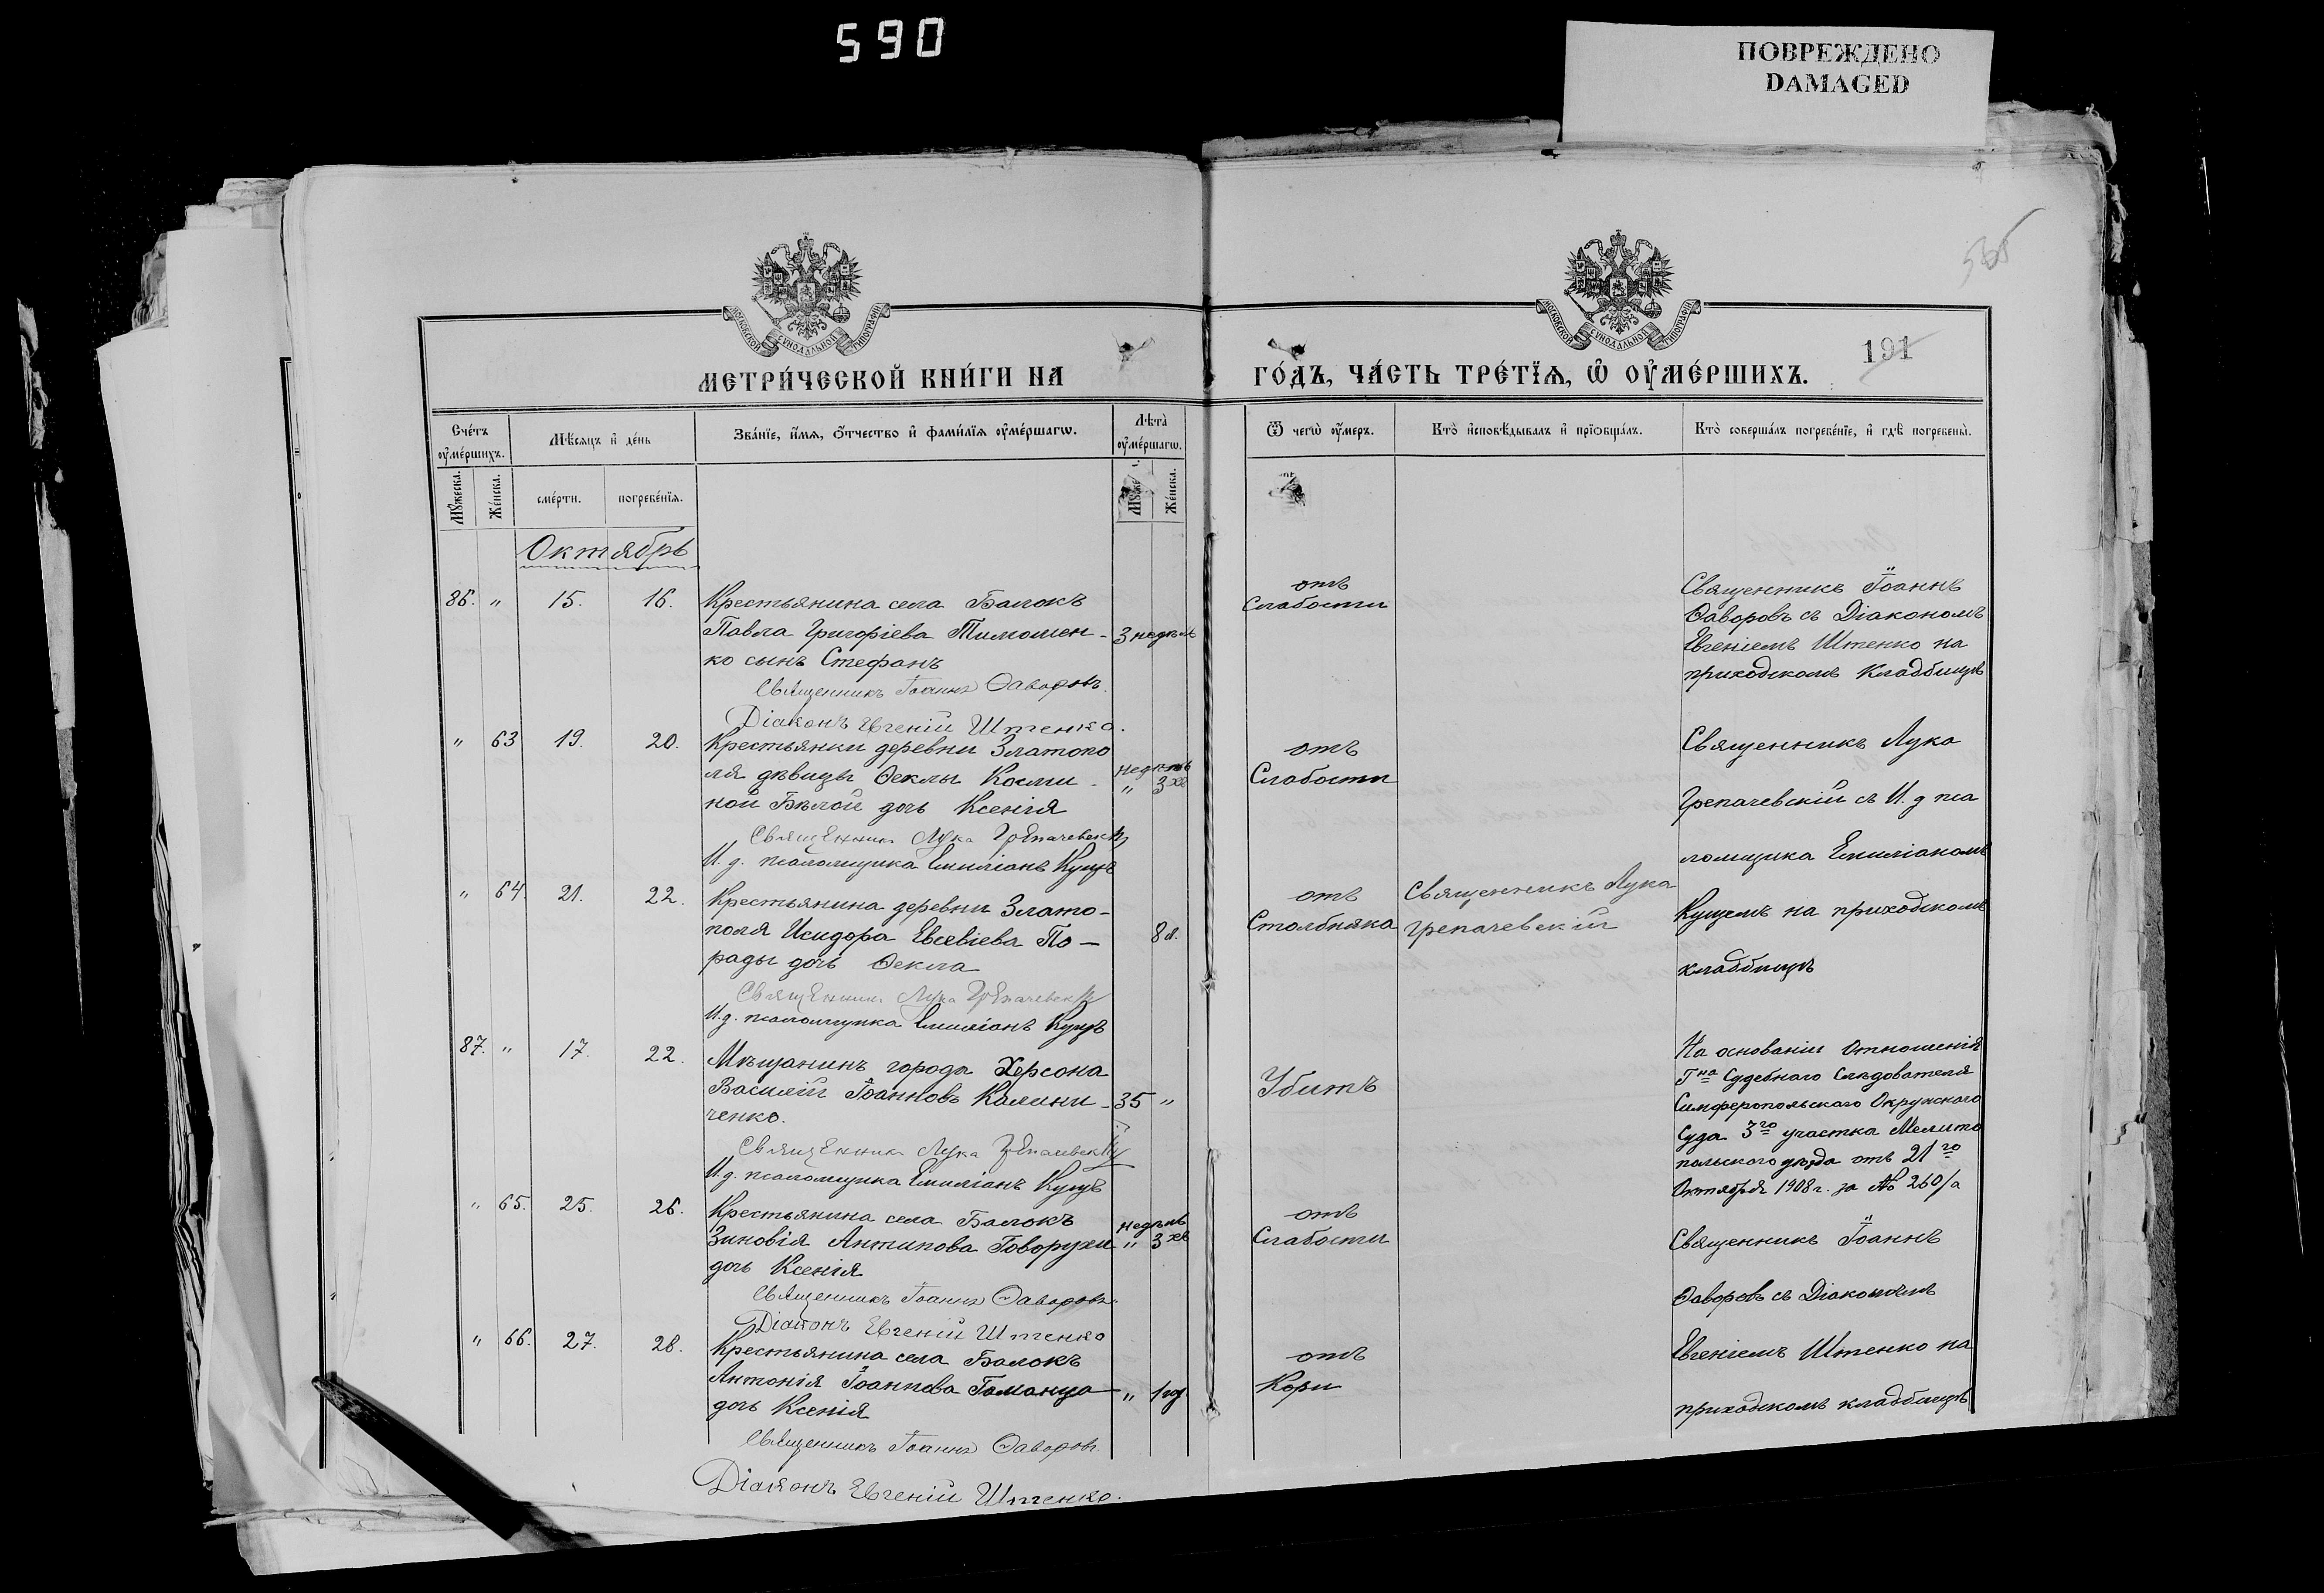 590
ПОВРЕЖДЕНО
DAMAGED
565
191
МОСКОВСКОЙ СѴНОДАЛЬНОЙ ТИПОГРАФІИ
МОСКОВСКОЙ СѴНОДАЛЬНОЙ ТИПОГРАФІИ
МЕТРИ́ЧЕСКОЙ КНИ́ГИ НА
ГО́ДЪ, ЧА́СТЬ ТРЕ́ТЇѦ, Ѡ҆ ОУ҆МЕ́РШИХЪ.
Сче́тъ
оу҆ме́ршихъ.
Мѣ́сяцъ и҆ де́нь
Зва́нїе, и҆́мѧ, ѻ҆́тчество и҆ фами́лїѧ оу҆ме́ршагѡ.
Лѣ̑та̀
оу҆ме́ршагѡ.
Ѿ чегѡ̀ оу҆́меръ.
Кто̀ и҆сповѣ́дывалъ и҆ прїѡбща́лъ.
Кто̀ соверша́лъ погребе́нїе, и҆ гдѣ̀ погребены̀.
Мꙋ́жеска.
Же́нска.
сме́рти.
погребе́нїѧ.
Же́нска.
Октябрь
86. " 15. 16.
Крестьянина села Балокъ
Павла Григоріева Тимошен-
ко сынъ Стефанъ
3 недѣль
Священникъ Іоаннъ Ѳаворовъ.
Діаконъ Евгеній Штенко.
отъ
Слабости
Священникъ Іоаннъ
Ѳаворовъ съ Діакономъ
Евгеніемъ Штенко на
приходскомъ кладбищѣ
" 63 19. 20.
Крестьянки деревни Златопо
ля дѣвицы Ѳеклы Косми-
ной Бѣлой дочь Ксенія
недѣль
" 3хъ
Священникъ Лука Грепачевскій
И. д. псаломщика Емиліанъ Кущъ
отъ
Слабости
Священникъ Лука
Грепачевскій съ И. д. пса
ломщика Емиліаномъ
Кущемъ на приходскомъ
кладбищѣ
" 64. 21. 22.
Крестьянина деревни Злато-
поля Исидора Евсевіева По-
рады дочь Ѳекла
8 л.
Священникъ Лука Грепачевскій
И. д. псаломщика Емиліанъ Кущъ
отъ
Столбняка
Священникъ Лука
Грепачевскій
87. " 17. 22.
Мѣщанинъ города Херсона
Василій Іоанновъ Калини-
ченко.
35 "
Священникъ Лука Грепачевскій
И. д. псаломщика Емиліанъ Кущъ
Убитъ
На основаніи Отношенія
Гна Судебнаго Слѣдователя
Симферопольскаго Окружнаго
Суда 3го участка Мелито
польскаго уѣзда отъ 21го
Октября 1908 г. за № 260/а
" 65. 25. 26.
Крестьянина села Балокъ
Зиновія Антипова Говорухи
дочь Ксенія
недѣль
" 3хъ
Священникъ Іоаннъ Ѳаворовъ.
Діаконъ Евгеній Штенко
отъ
Слабости
Священникъ Іоаннъ
Ѳаворовъ съ Діакономъ
Евгеніемъ Штенко на
приходскомъ кладбищѣ
" 66. 27. 28.
Крестьянина села Балокъ
Антонія Іоаннова Гаманца
дочь Ксенія
" 1 год
Священникъ Іоаннъ Ѳаворовъ.
Діаконъ Евгеній Штенко.
отъ
Кори